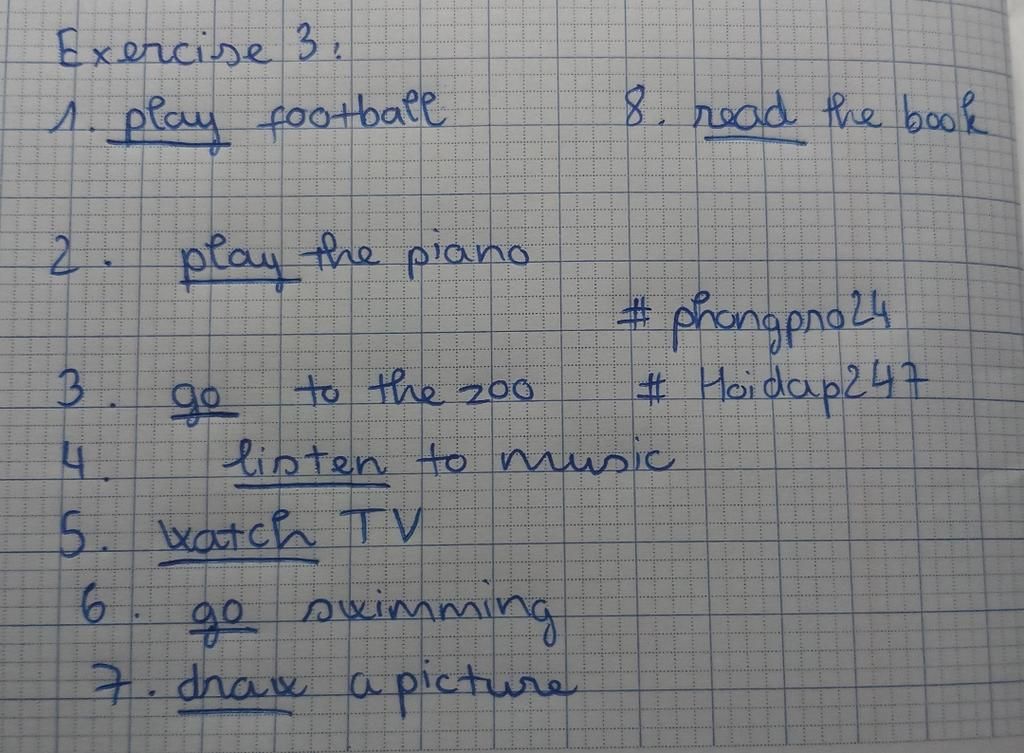 Exercise 3:
1. play football
8. read the book
2. play the piano
# phongpro24
3. go to the zoo
# Hoidap247
4. listen to music
5. watch TV
6. go swimming
7. draw a picture